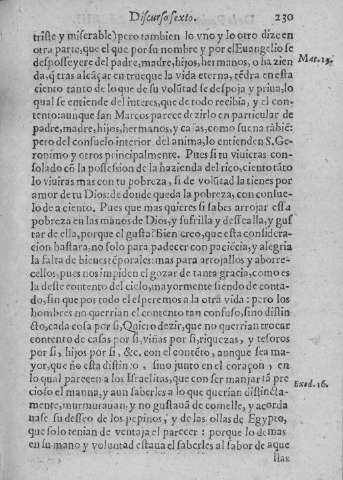 Discurso sexto. 230
triste y miserable) pero tambien lo vno y lo otro dize en
otra parte, que el que por su nombre y por el Euangelio se
desposseyere del padre, madre, hijos, hermanos, o hazien
da, q̃ tras alcãçar en trueque la vida eterna, tẽdra en esta
Mat. 19.
ciento tanto de lo que de su volũtad se despoja y priua, lo
qual se entiende del interes, que de todo recibia, y el con-
tento: aunque san Marcos parece dezirlo en particular de
padre, madre, hijos, hermanos, y casas, como suena tãbiẽ:
pero del consuelo interior del anima, lo entienden S. Ge-
ronimo y otros principalmente. Pues si tu viuieras con-
solado cõ la possession de la hazienda del rico, ciento tãto
lo viuiras mas con tu pobreza, si de volũtad la tienes por
amor de tu Dios: de donde queda la pobreza, con consue-
lo de a ciento. Pues que mas quieres si sabes arrojar essa
pobreza en las manos de Dios, y sufrilla y dessealla, y gus
tar de ella, porque el gusta? Bien creo, que esta considera-
cion bastara, no solo para padecer con paciẽcia, y alegria
la falta de bienes tẽporales: mas para arrojallos y aborre-
cellos, pues nos impiden el gozar de tanta gracia, como es
la deste contento del cielo, mayormente siendo de conta-
do, sin que por todo el esperemos a la otra vida: pero los
hombres no querrian el contento tan confuso, sino distin
cto, cada cosa por si, Quiero dezir, que no querrian trocar
contento de casas por si, viñas por si, riquezas, y tesoros
por si, hijos por si, &c. con el contẽto, aunque sea ma-
yor, que no esta distincto, sino junto en el coraçon, en
lo qual parecen a los Israelitas, que con ser manjar tã pre
cioso el manna, y aun saberles a lo que querian distincta-
Exod. 16.
mente, murmurauan, y no gustauã de comelle, y acorda
uase su desseo de los pepinos, y de las ollas de Egypto,
que solo tenian de ventaja el parecer: porque lo demas
en su mano y voluntad estaua el saberles al sabor de aque
llas